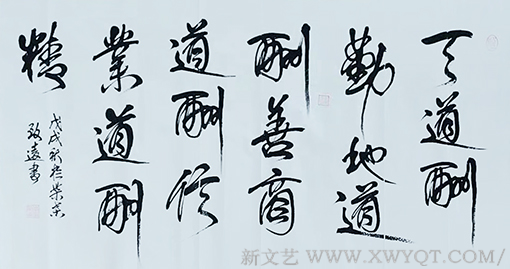 天道酬
勤地道
酬善商
道酬信
業道酬
精
戊戌秋於
致遠書
新文艺 / WWW.XWYQT.COM/